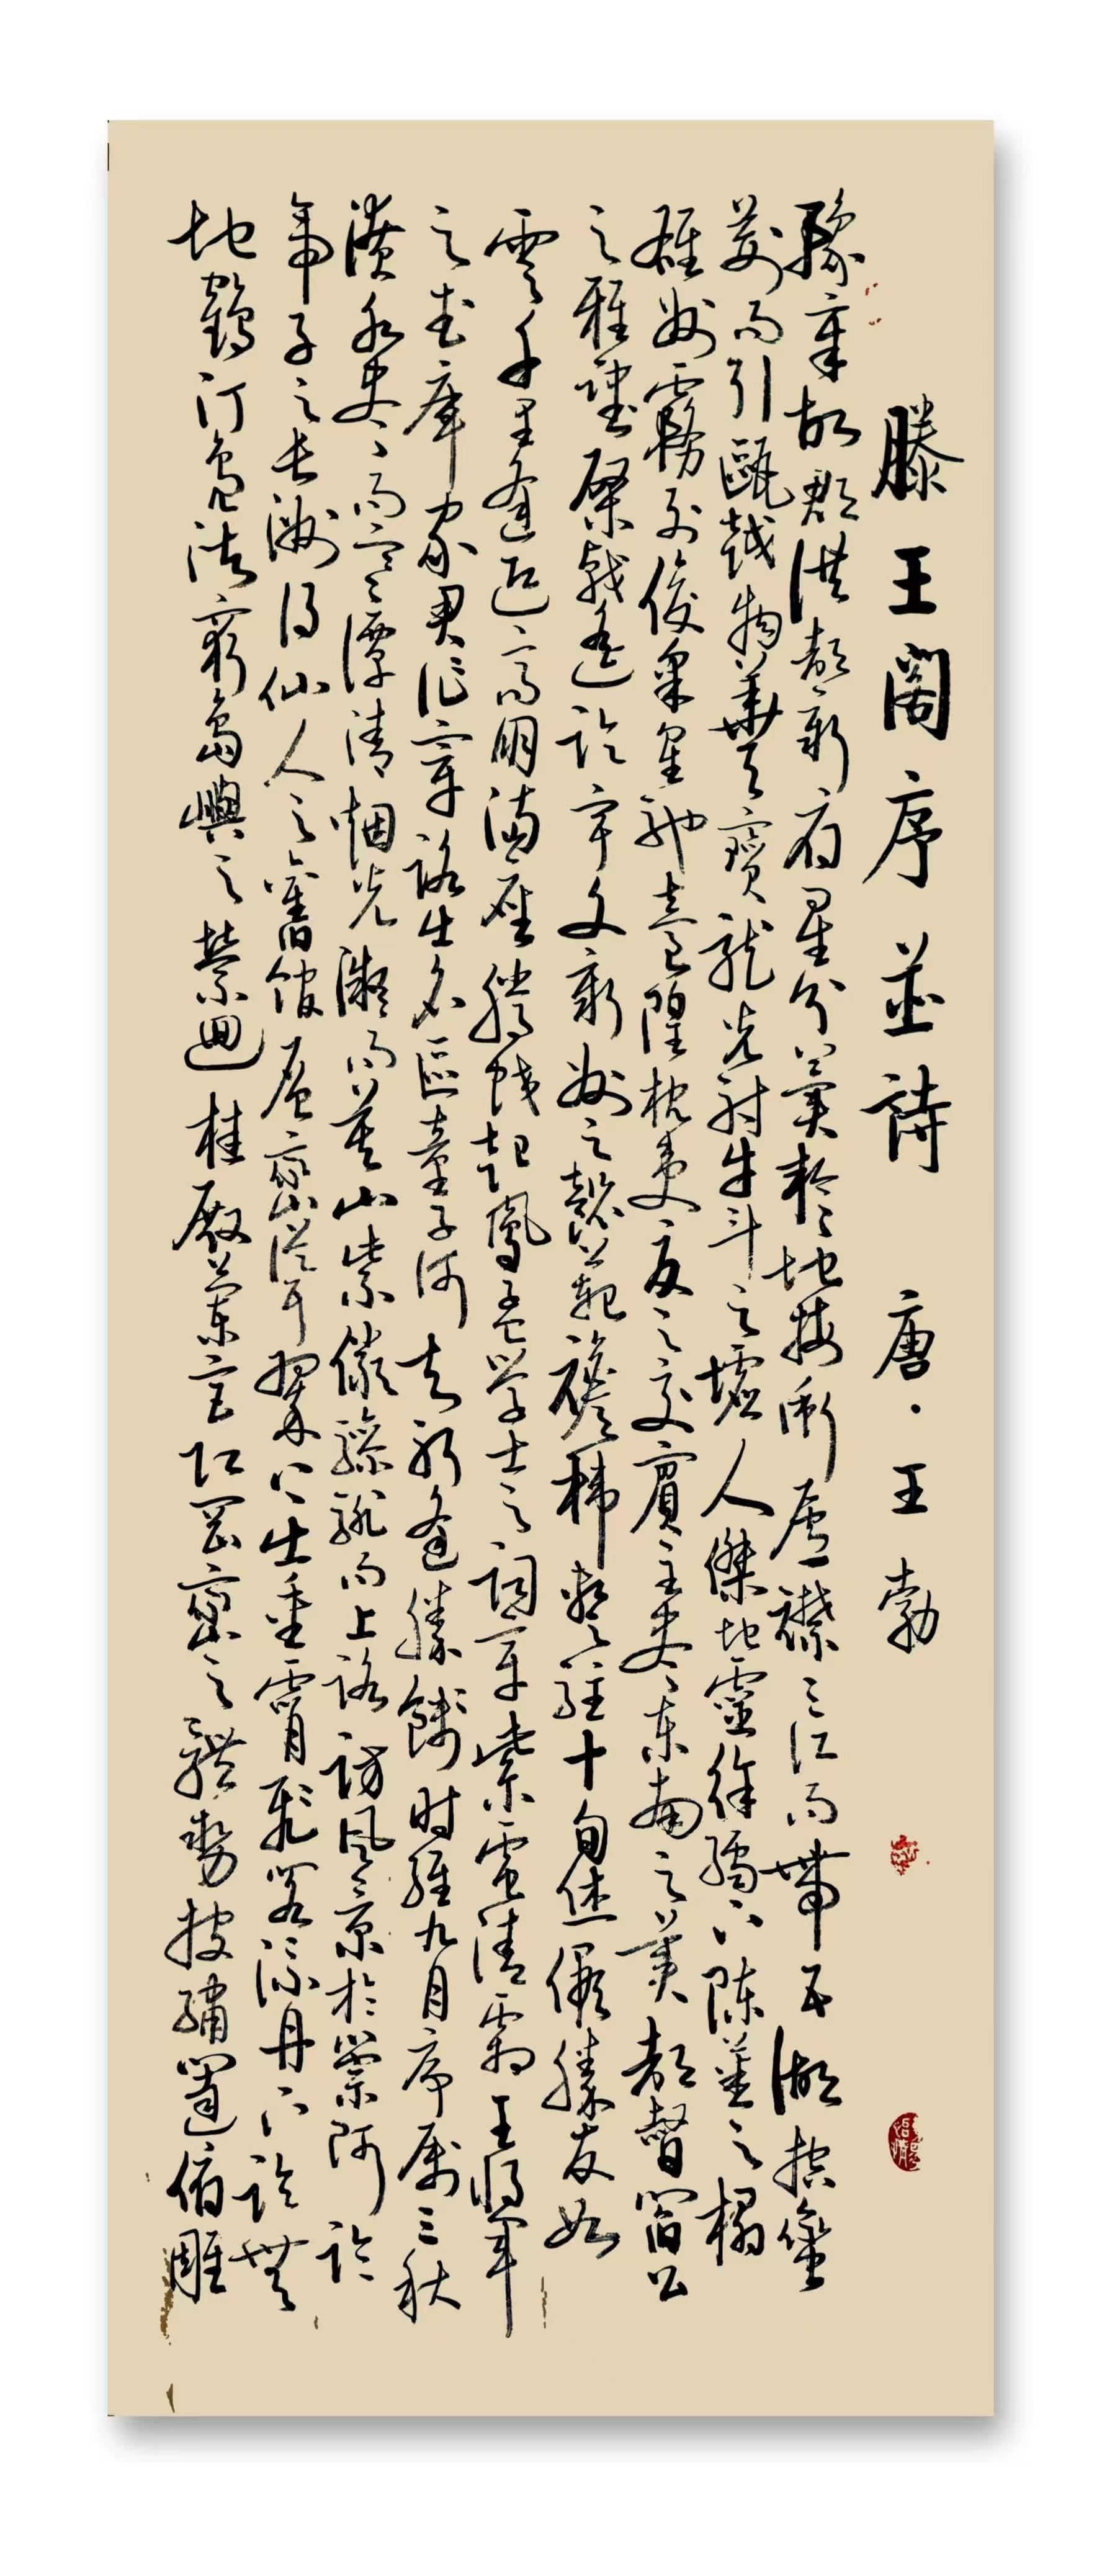 滕王閣序並詩 唐·王勃
豫章故郡洪都新府星分翼軫地接衡廬襟三江而帶五湖控蠻
荊而引甌越物華天寶龍光射牛斗之墟人傑地靈徐孺下陳蕃之榻
雄州霧列俊采星馳臺隍枕夷夏之交賓主盡東南之美都督閻公
之雅望棨戟遙臨宇文新州之懿範襜帷暫駐十旬休假勝友如
雲千里逢迎高朋滿座騰蛟起鳳孟學士之詞宗紫電清霜王將軍
之武庫家君作宰路出名區童子何知躬逢勝餞时維九月序屬三秋
潦水盡而寒潭清烟光凝而暮山紫儼驂騑而上路訪風景於崇阿臨
帝子之長洲得仙人之舊館層巒聳翠上出重霄飛閣流丹下臨無
地鶴汀鳧渚窮島嶼之縈迴桂殿蘭宮即岡巒之體勢披繡闥俯雕